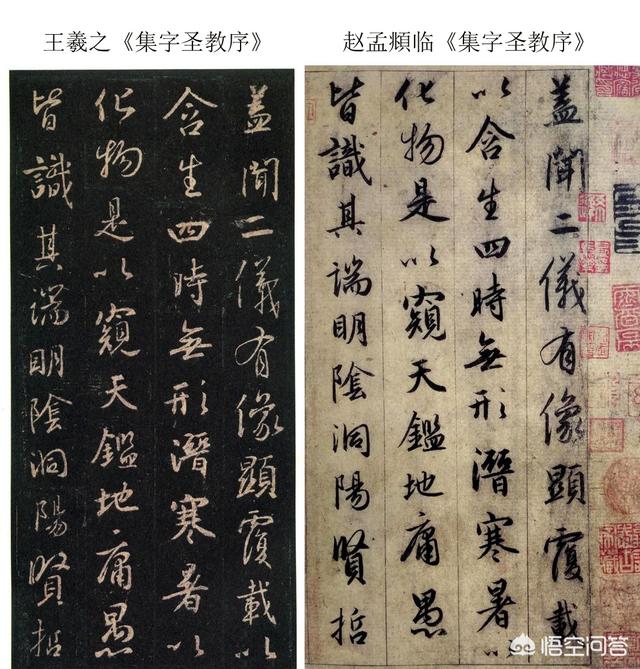 王羲之《集字圣教序》
盖聞二儀有像顯覆載以
含生四時無形潛寒暑以
化物是以窺天鑑地庸愚
皆識其端明陰洞陽賢哲
赵孟頫临《集字圣教序》
盖聞二儀有像顯覆載
以含生四時無形潛寒暑以
化物是以窺天鑑地庸愚
皆識其端明陰洞陽賢哲
悟空问答